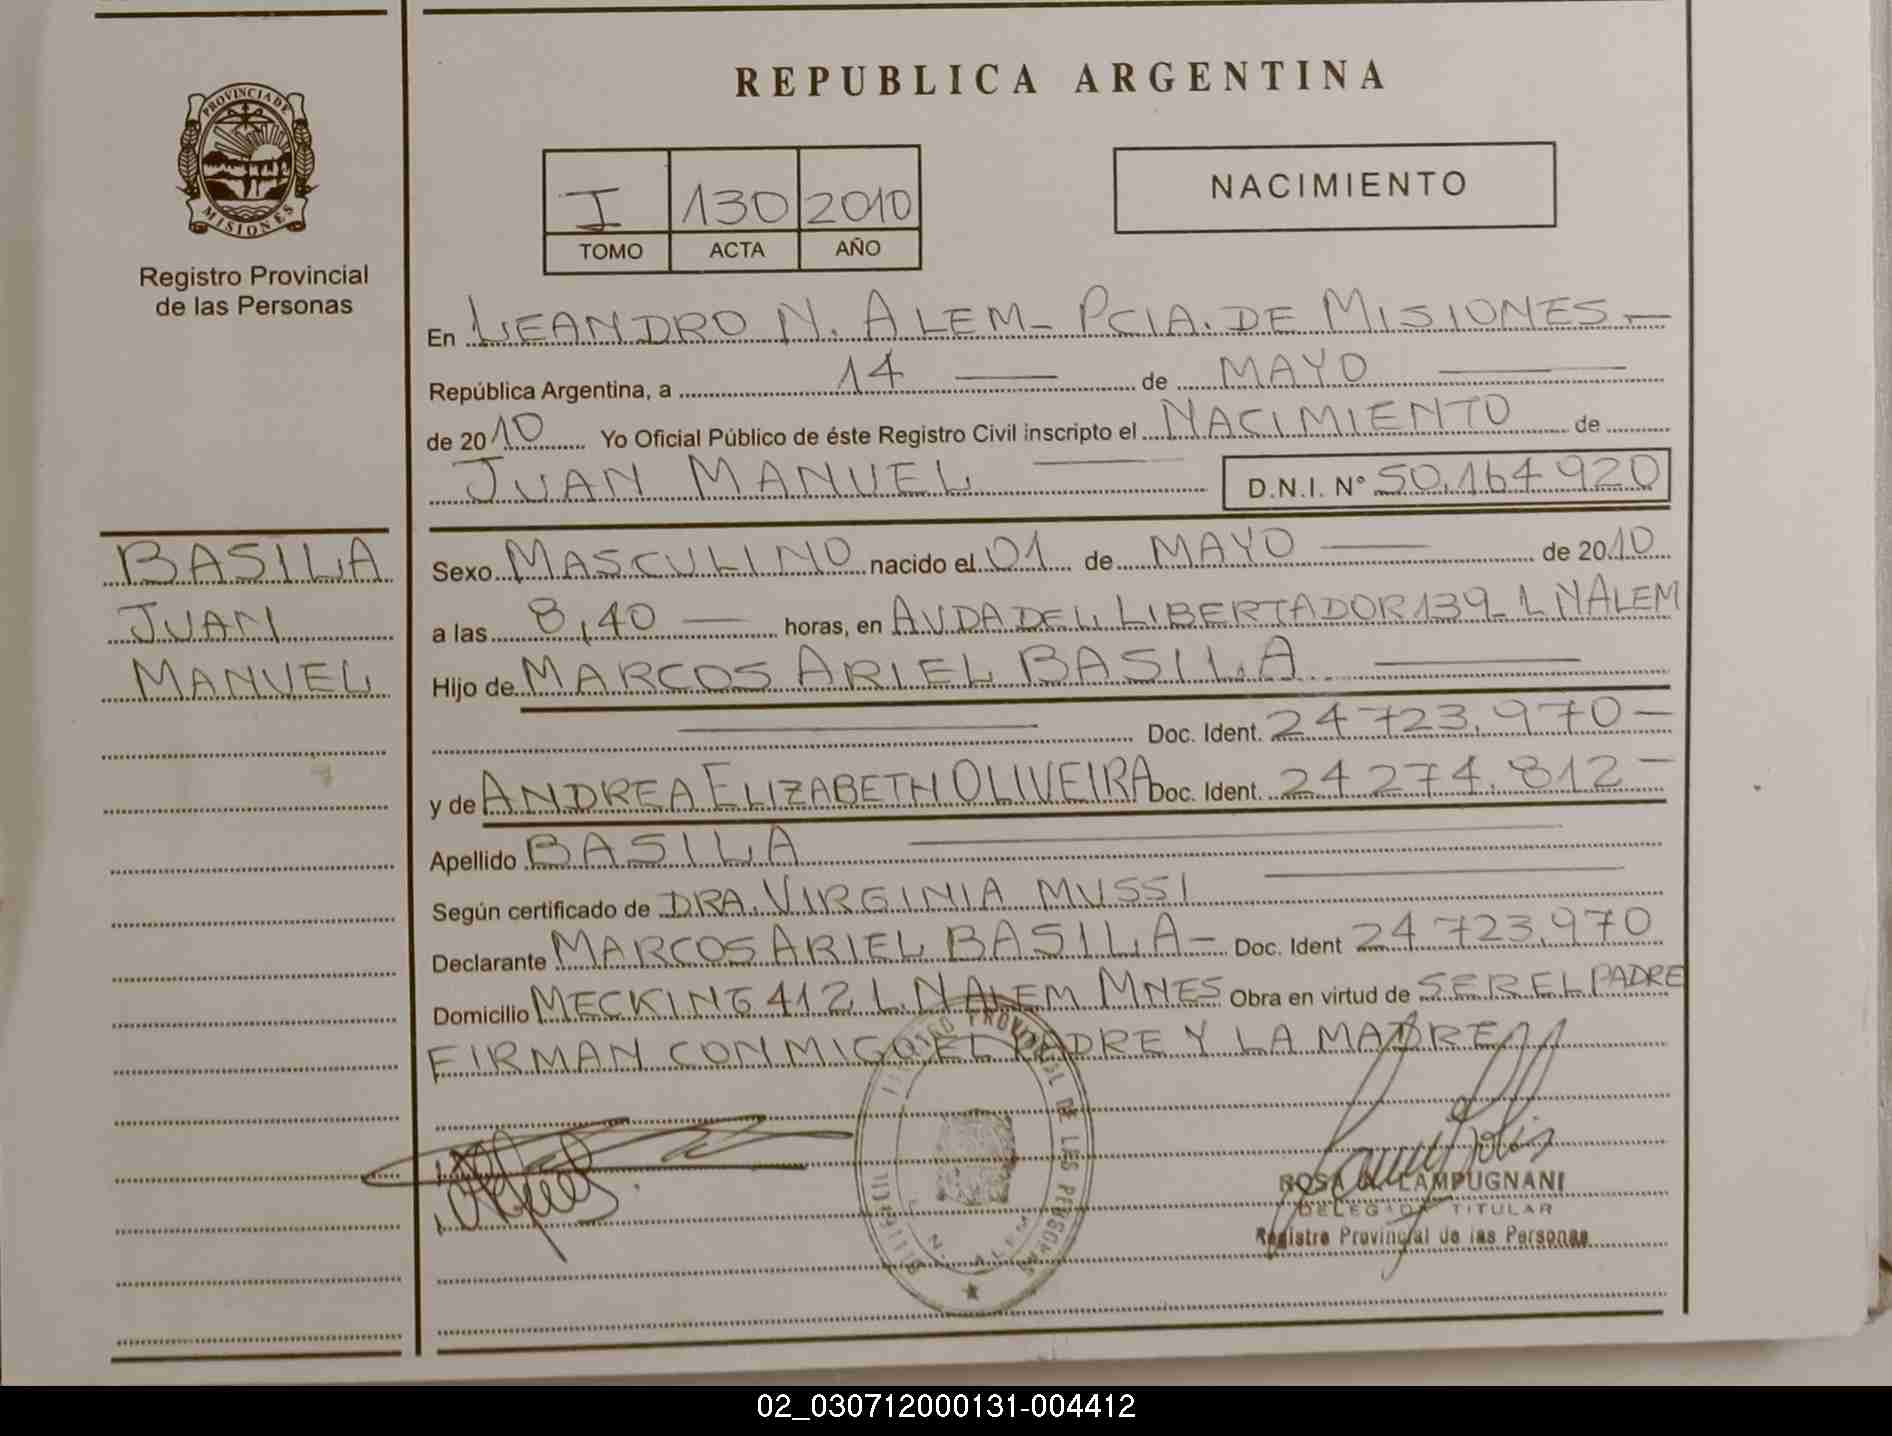 REPUBLICA ARGENTINA
PROVINCIA DE
MISIONES
Registro Provincial
de las Personas
I 130 2010
TOMO ACTA AÑO
NACIMIENTO
En LEANDRO N. ALEM - PCIA. DE MISIONES.-
República Argentina, a 14 de MAYO
de 2010 Yo Oficial Público de éste Registro Civil inscripto el NACIMIENTO de
JUAN MANUEL D.N.I. N° 50.164920
BASILA
JUAN
MANUEL
Sexo MASCULINO nacido el 01 de MAYO de 2010
a las 8,40 horas, en AVDA DEL LIBERTADOR 139- L N ALEM
Hijo de MARCOS ARIEL BASILA
Doc. Ident. 24723.970-
y de ANDREA ELIZABETH OLIVEIRA Doc. Ident. 24274.812-
Apellido BASILA
Según certificado de DRA. VIRGINIA MUSSI
Declarante MARCOS ARIEL BASILA- Doc. Ident 24723.970
Domicilio MECKING 412 L.N ALEM MNES Obra en virtud de SER EL PADRE
FIRMAN CONMIGO EL PADRE Y LA MADRE
PROVINCIAL DE LAS PERSONAS
N. ALEM
ROSA LAMPUGNANI
DELEGADA TITULAR
Registro Provincial de las Personas
02_030712000131-004412